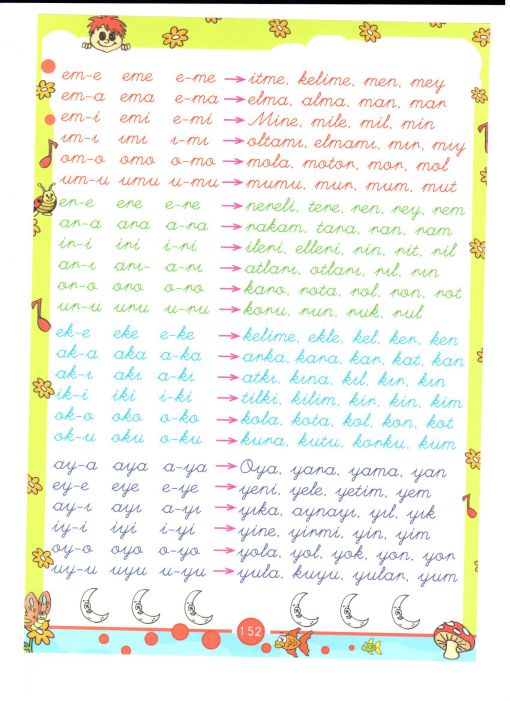 em-e eme e-me → itme, kelime, men, mey
em-a ema e-ma → elma, alma, man, mar
em-i emi e-mi → Mine, mile, mil, min
ım-ı ımı ı-mı → oltamı, elmamı, mır, mıy
om-o omo o-mo → mola, motor, mor, mol
um-u umu u-mu → mumu, mur, mum, mut
er-e ere e-re → nereli, tere, ren, rey, rem
ar-a ara a-ra → rakam, tara, ran, ram
ir-i iri i-ri → ileri, elleri, rin, rit, ril
arı-ı arı- a-rı → atları, otları, rıl, rın
or-o oro o-ro → karo, rota, rol, ron, rot
ur-u uru u-ru → koru, run, ruk, rul
ek-e eke e-ke → kelime, ekle, kel, ker, ken
ak-a aka a-ka → arka, kara, kar, kat, kan
ak-ı akı a-kı → atkı, kına, kıl, kır, kın
ik-i iki i-ki → tilki, kilim, kir, kin, kim
ok-o oko o-ko → kola, kota, kol, kon, kot
ok-u oku o-ku → kura, kutu, korku, kum
ay-a aya a-ya → Oya, yara, yama, yan
ey-e eye e-ye → yeni, yele, yetim, yem
ay-ı ayı a-yı → yıka, aynayı, yıl, yık
iy-i iyi i-yi → yine, yirmi, yin, yim
oy-o oyo o-yo → yola, yol, yok, yon, yor
uy-u uyu u-yu → yula, kuyu, yular, yum
152